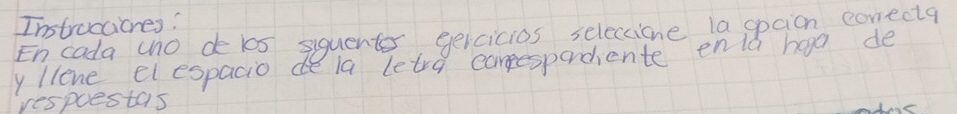 Instrucciones:
En cada uno de los siguentes gercicios seleccione la opcion correcta
y llene el espacio de la letra correspondiente en la hoja de
respuestas